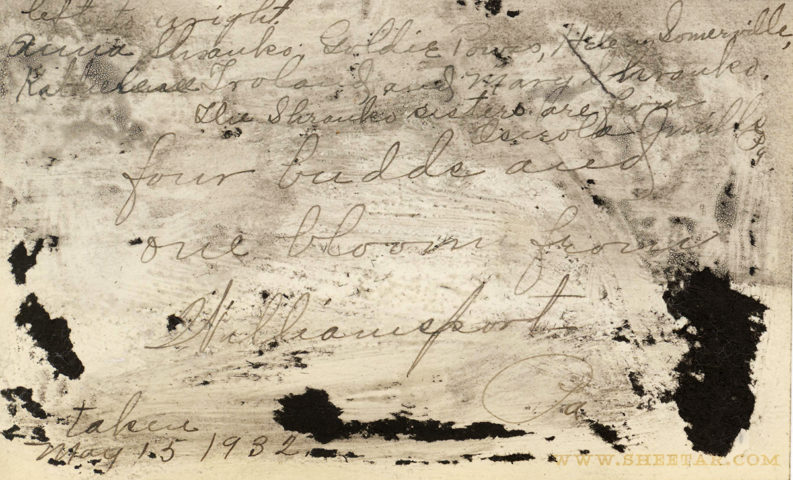 left to wright.
Anna Shranko. Goldie Powes, Helen Somerville,
Katherine Troland, and Mary Shranko.
The Shranko sisters are from
Osceola Mills
Pa
four budds and
one bloom from
Williamsport
Pa
taken
May 15 1932
WWW.SHEETAR.COM